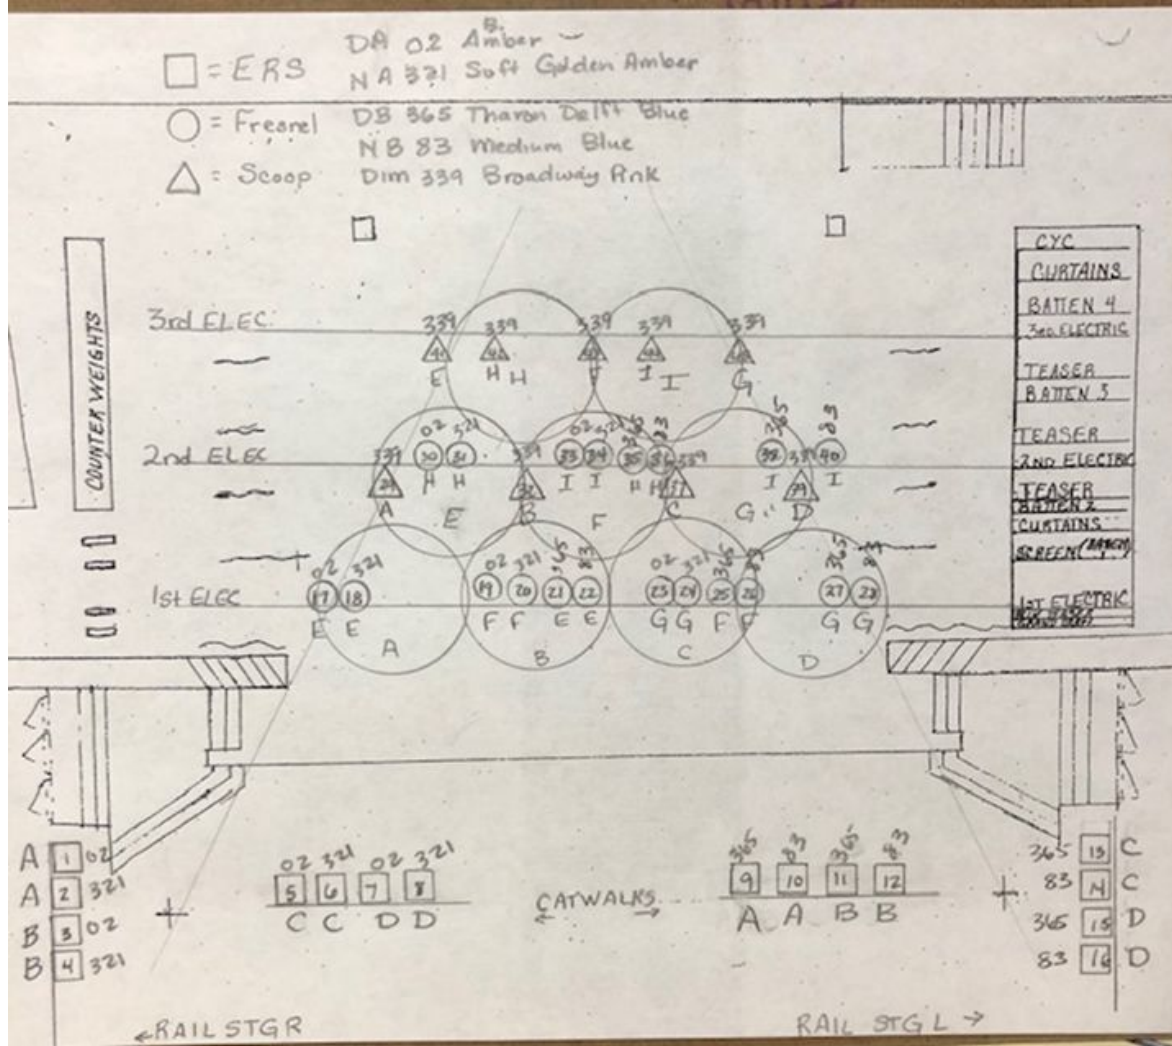 = ERS
= Fresnel
= Scoop
DA 02 B. Amber
NA 321 Soft Golden Amber
DB 365 Tharon Delft Blue
NB 83 Medium Blue
Dim 339 Broadway Pink
COUNTER WEIGHTS
CYC
CURTAINS
BATTEN 4
3RD. ELECTRIC
TEASER
BATTEN 3
TEASER
2ND ELECTRIC
TEASER
BATTEN 2
CURTAINS
SCREEN
1ST ELECTRIC
3rd ELEC.
339 339 339 339 339
E H H I I G
2nd ELEC
02 321 02 321 365 83 365 83
339 339 339 339
30 31 33 34 35 36 38 40
H H I I H H I I
A B C D
E F G
1st ELEC
02 321 02 321 365 83 02 321 365 83 365 83
17 18 19 20 21 22 23 24 25 26 27 28
E E F F E E G G F F G G
A B C D
A 1 02
A 2 321
B 3 02
B 4 321
02 321 02 321
5 6 7 8
C C D D
CATWALKS
365 83 365 83
9 10 11 12
A A B B
365 13 C
83 14 C
365 15 D
83 16 D
RAIL STGR
RAIL STG L